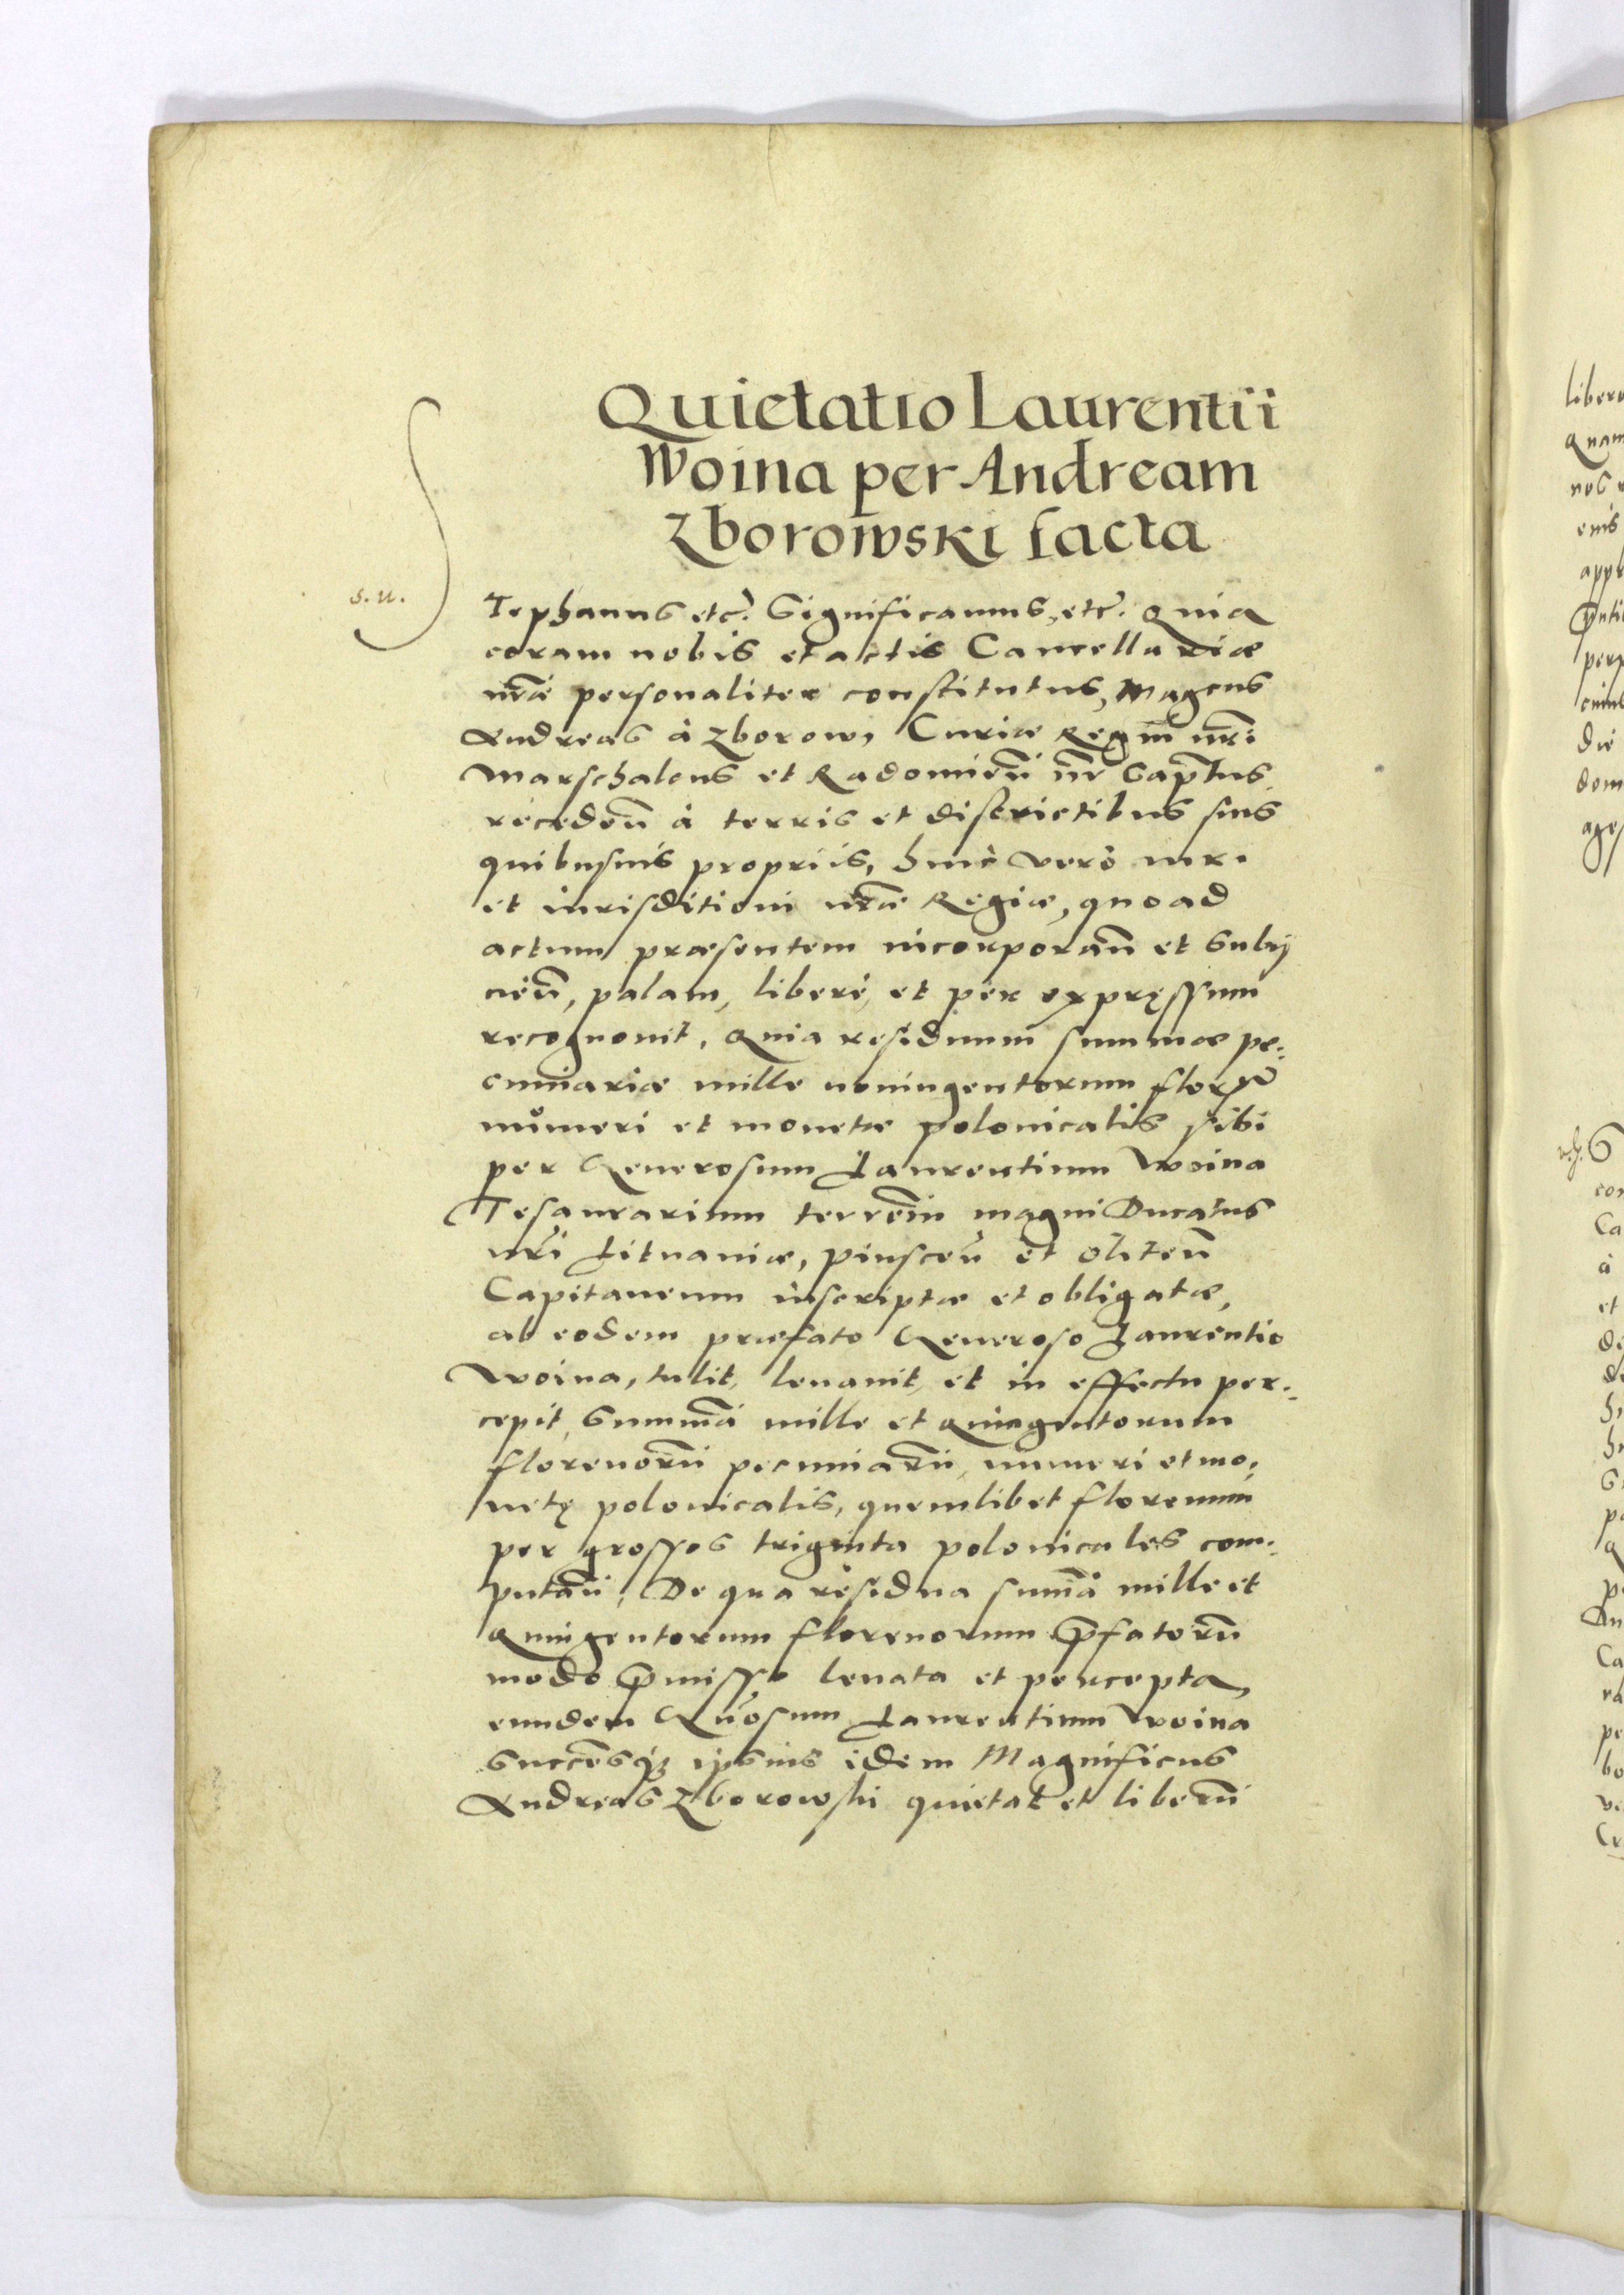 Quietatio Laurentii
Woina per Andream
Zborowski facta
s. u.
Stephanus etc̃. Significamus, etc̃. Quia
coram nobis et actis Cancellariæ
nr̃æ personaliter constitutus, Magcus
Andreas à Zborow, Curiæ Regni nr̃i
Marschalcus et Radomien̄ nr̃ Capt̄us,
recedeñ à terris et districtibus suis
quibusuis propriis, huic verò iuri
et iurisditioni nr̃æ Regiæ, quo ad
actum præsentem incorporañ et subij
cieñ, palam, liberè, et per expręssum
recognouit. Quia residuum summæ pe:
cuniariæ mille noningentorum flor̃
numeri et monetæ polonicalis sibi
per Generosum Laurentium Woina
Tesaurarium terreñ magni Ducatus
nr̃i Lituaniæ, pinsceñ et oliteñ
Capitaneum inscriptæ et obligatæ,
ab eodem præfato Generoso Laurentio
Woina, tulit, leuauit, et in effectu per:
cepit, Summã mille et quingentorum
florenorũ pecuniarũ, numeri et mo:
netę polonicalis, quemlibet florenum
per grossos triginta polonicales com:
putañ, De qua residua sum̃a mille et
quingentorum florenorum p̄fatorũ
modo p̄misso leuata et percepta,
eundem Gñosum Laurentium Woina
succẽsq3 ipsius idem Magnificus
Andreas Zborowski quietat et liberũ
liber
Quam
nos
enis